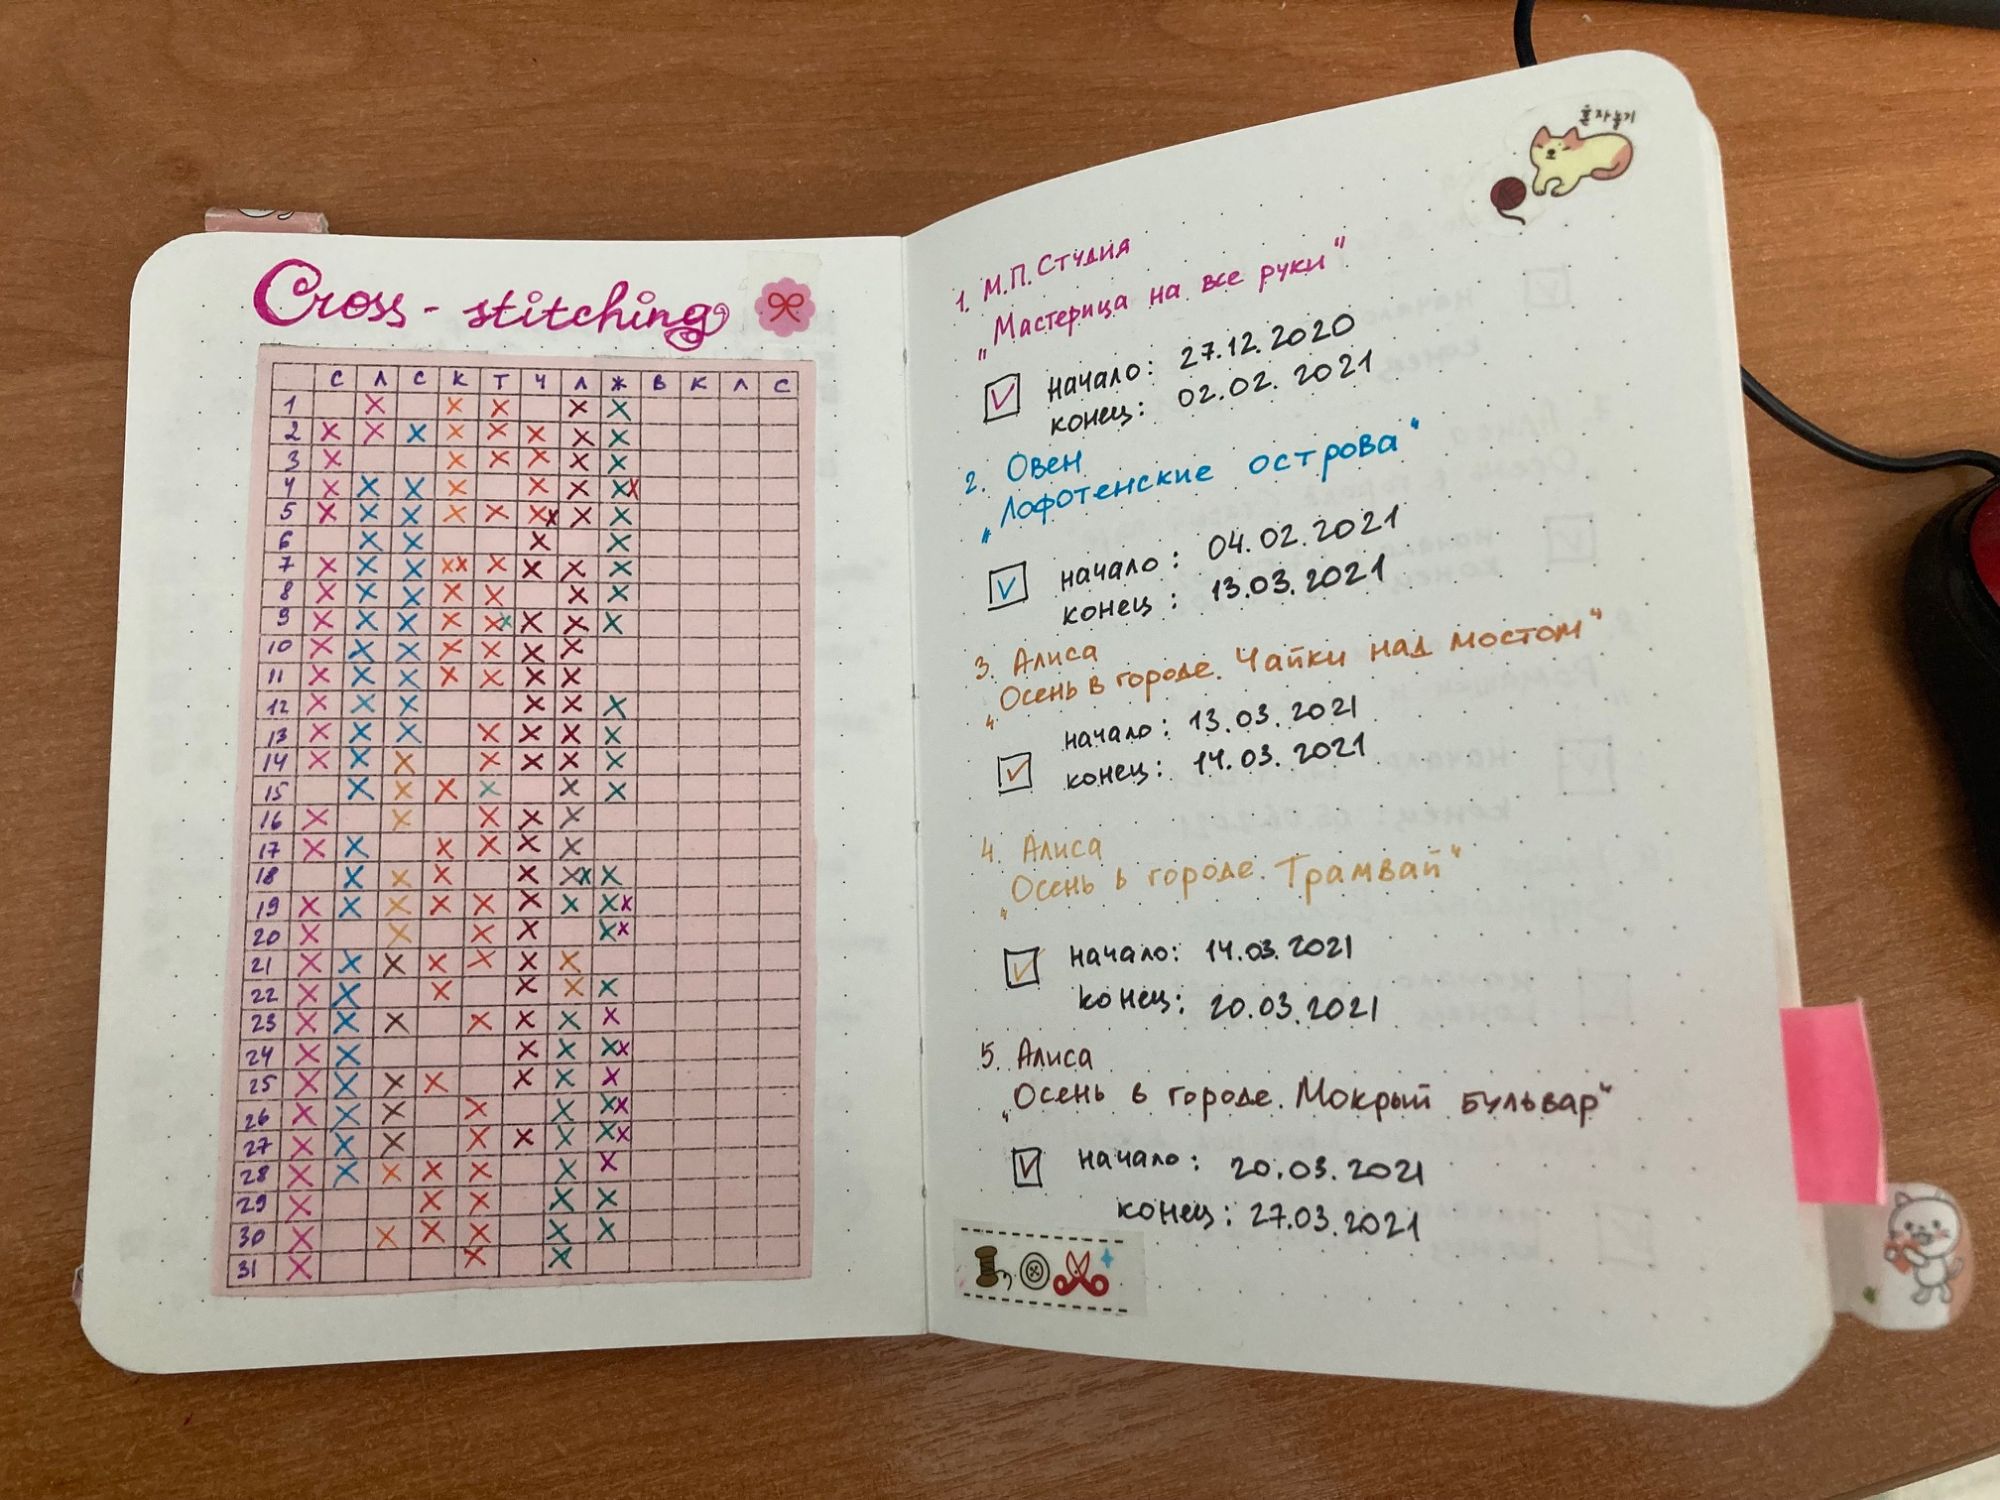 Cross-stitching
С Л С К Т Ч Л Ж В К Л С
1
2
3
4
5
6
7
8
9
10
11
12
13
14
15
16
17
18
19
20
21
22
23
24
25
26
27
28
29
30
31
혼자놀기
1. М.П. Студия
„Мастерица на все руки"
начало: 27.12.2020
конец: 02.02.2021
2. Овен
„Лофотенские острова"
начало: 04.02.2021
конец: 13.03.2021
3. Алиса
„Осень в городе. Чайки над мостом"
начало: 13.03.2021
конец: 14.03.2021
4. Алиса
„Осень в городе. Трамвай"
начало: 14.03.2021
конец: 20.03.2021
5. Алиса
„Осень в городе. Мокрый бульвар"
начало: 20.03.2021
конец: 27.03.2021